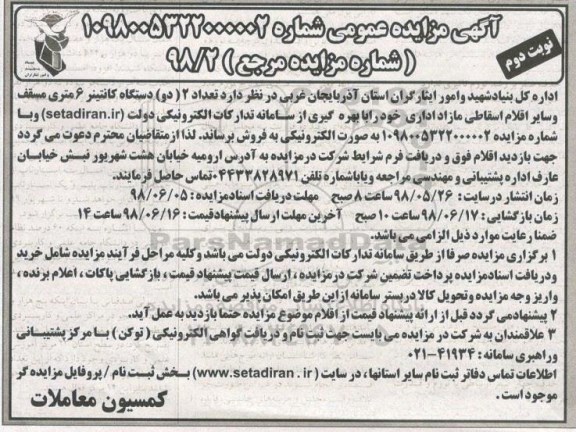 آگهی مزایده عمومی شماره ۱۰۹۸۰۰۵۳۲۲۰۰۰۰۰۲
( شماره مزایده مرجع ) ۹۸/۲
نوبت دوم
اداره کل بنیادشهید وامور ایثارگران استان آذربایجان غربی در نظر دارد تعداد ۲ ( دو) دستگاه کانتینر ۶ متری مسقف
وسایر اقلام اسقاطی مازاد اداری خود را با بهره گیری از سامانه تدارکات الکترونیکی دولت (setadiran.ir) وبا
شماره مزایده ۱۰۹۸۰۰۵۳۲۲۰۰۰۰۰۲ به صورت الکترونیکی به فروش برساند. لذا از متقاضیان محترم دعوت می گردد
جهت بازدید اقلام فوق و دریافت فرم شرایط شرکت در مزایده به آدرس ارومیه خیابان هشت شهریور نبش خیابان
عارف اداره پشتیبانی و مهندسی مراجعه و یا باشماره تلفن ۰۴۴۳۳۸۲۸۹۷۱ تماس حاصل فرمایند.
زمان انتشار در سایت: ۹۸/۰۵/۲۶ ساعت ۸ صبح مهلت دریافت اسناد مزایده : ۹۸/۰۶/۰۵
زمان بازگشایی : ۹۸/۰۶/۱۷ ساعت ۱۰ صبح آخرین مهلت ارسال پیشنهاد قیمت : ۹۸/۰۶/۱۶ ساعت ۱۴
ضمنا رعایت موارد ذیل الزامی می باشد.
۱ برگزاری مزایده صرفا از طریق سامانه تدارکات الکترونیکی دولت می باشد و کلیه مراحل فرآیند مزایده شامل خرید
و دریافت اسناد مزایده پرداخت تضمین شرکت در مزایده ، ارسال قیمت پیشنهاد قیمت ، بازگشایی پاکات ، اعلام برنده ،
واریز وجه مزایده و تحویل کالا در بستر سامانه از این طریق امکان پذیر می باشد.
۲ پیشنهاد می گردد قبل از ارائه پیشنهاد قیمت از اقلام موضوع مزایده حتما بازدید به عمل آید.
۳ علاقمندان به شرکت در مزایده می بایست جهت ثبت نام و دریافت گواهی الکترونیکی (توکن ) با مرکز پشتیبانی
و راهبری سامانه : ۴۱۹۳۴-۰۲۱
اطلاعات تماس دفاتر ثبت نام سایر استانها ، در سایت ( www.setadiran.ir) بخش ثبت نام / پروفایل مزایده گر
موجود است .
کمسیون معاملات
ParsNamadData